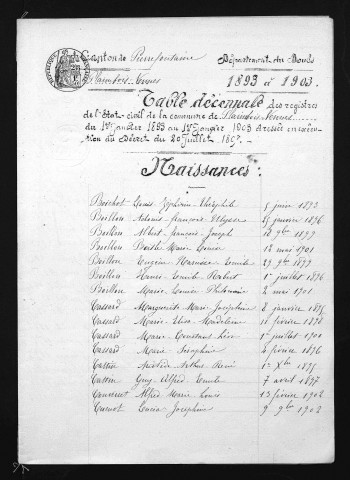 Canton de Pierrefontaine Département du Doubs
1893 à 1903
Table décennale des registres
de l'état civil de la commune de
du 1er Janvier 1893 au 1er Janvier 1903 dressée en exécu-
tion du Décret du 20 Juillet
Naissances :
Boichot Louis Zéphirin Théophile 5 juin 1893
Boillon Antonin François Ulysse 15 janvier 1896
Boillon Albert François Joseph 9bre 1899
Boillon Berthe Marie Louise mai 1901
Boillon Eugène Narcisse Emile 29 9bre 1899
Boillon Henri Emile Hubert 1er juillet 1896
Boillon Marie Louise Philomène 2 mai 1901
Cassard Marguerite Marie Joséphine 2 janvier 1895
Cassard Marie Elisa Madeleine 11 février 1898
Cassard Marie Constant Léon 1er juillet 1900
Cassard Marie Séraphine 4 février 1896
Cattin Aristide Arthur René 1er Xbre 1895
Cattin Guy Alfred Emile 7 avril 1897
Alfred Marie Louis 15 février 1902
Cuenot Lucia Joséphine 9 9bre 1902